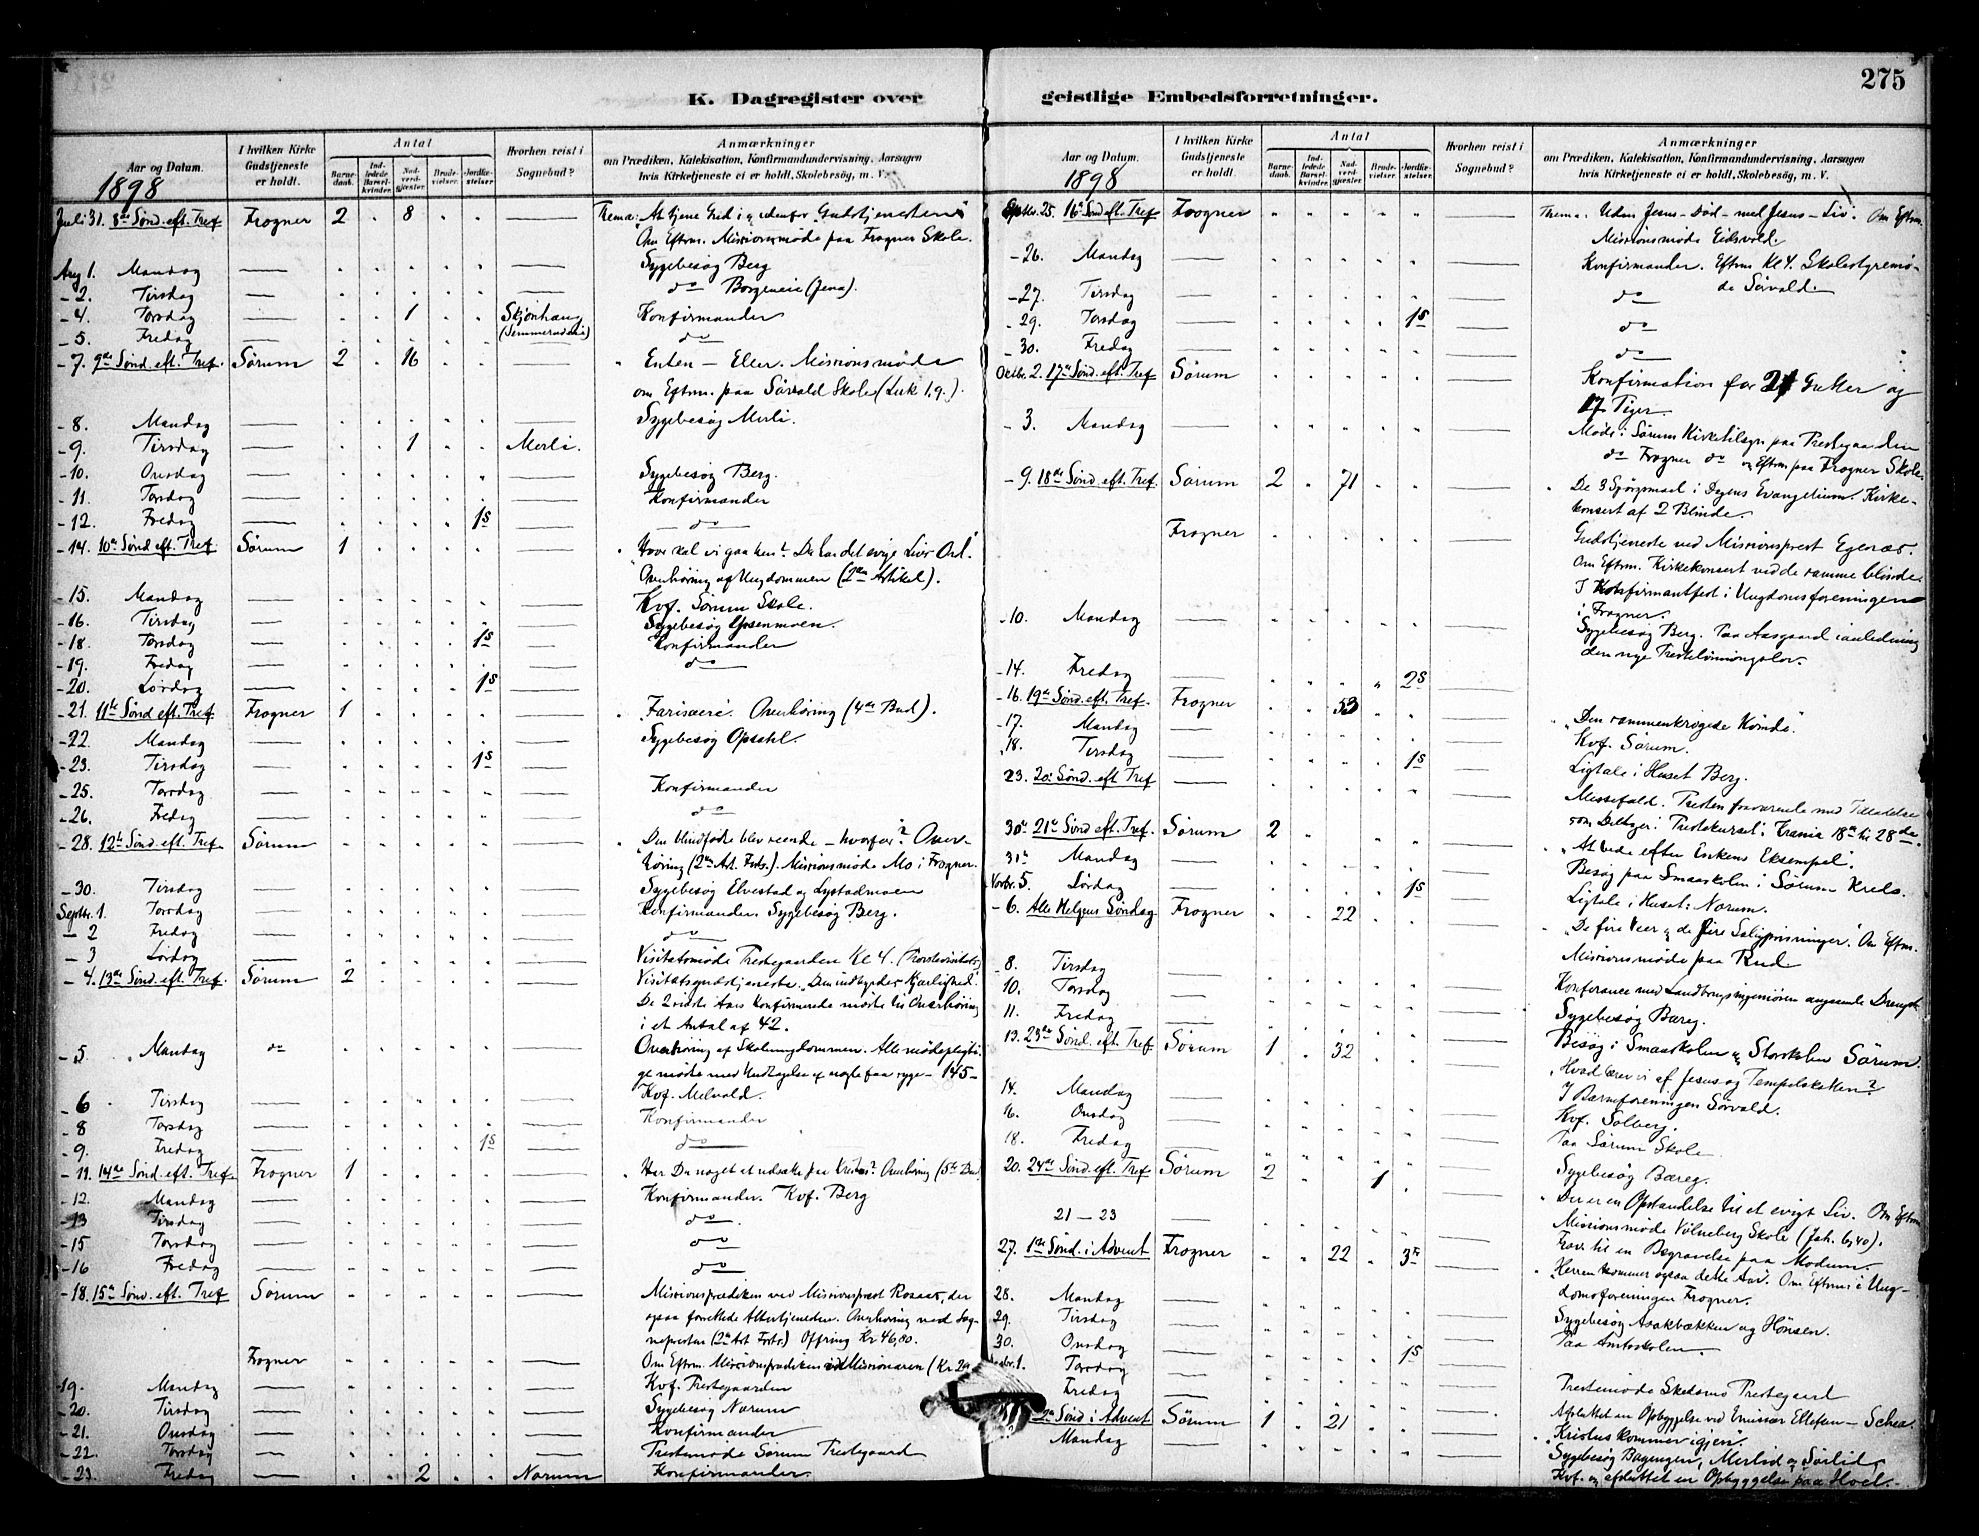 275
K. Dagregister over geistlige Embedsforretninger.
Aar og Datum.
I hvilken Kirke Gudstjeneste er holdt.
Antal
Barnedaab.
Indledede Barselkvinder.
Nadverdgjester.
Brudevielser.
Jordfæstelser.
Hvorhen reist i Sognebud?
Anmærkninger
om Prædiken, Katekisation, Konfirmandundervisning, Aarsagen
hvis Kirketjeneste ei er holdt, Skolebesög, m. V.
1898
Juli 31. 8de Sønd. eft. Tref Frogner 2 8 Thema: At tjene Gud i og udenfor Gudstjenesten
Om Eftrm. Missionsmøde paa Frogner Skole.
Aug 1. Mandag Sygebesøg Berg
- 2. Tirsdag do Borgeneie (Jena).
- 4. Torsdag 1 Skjønhaug Konfirmander
- 5. Fredag do
- 7. 9de Sønd. eft. Tref. Sørum 2 16 Enten - Eller. Missionsmøde
om Eftrm. paa Sørvald Skole (Luk 1,9.).
- 8. Mandag Sygebesøg Merli.
- 9. Tirsdag 1 Merli.
- 10. Onsdag Sygebesøg Berg.
- 11. Torsdag Konfirmander
- 12. Fredag 1s do
- 14. 10de Sønd eft. Tref Sørum 1 Hvor skal vi gaa hen? Du har det evige Livs Ord.
Overhøring af Ungdommen (2den Artikel).
- 15. Mandag Kvf. Sørum Skole.
- 16. Tirsdag Sygebesøg
- 18. Torsdag 1s Konfirmander
- 19. Fredag do
- 20. Lørdag 1s
- 21. 11te Sønd eft. Tref Frogner 1 Farisæeri. Overhøring (4de Bud).
- 22. Mandag Sygebesøg Opsahl.
- 23. Tirsdag 1s
- 25. Torsdag Konfirmander
- 26. Fredag do
- 28. 12te Sønd. eft. Tref. Sørum Den blindfødte blev seende - hvorfor? Over-
høring (2den Art. Forts.). Missionsmøde Mo i Frogner.
- 30. Tirsdag Sygebesøg Elvestad og Lystadmoen
Septbr. 1. Torsdag Konfirmander. Sygebesøg Berg.
- 2 Fredag do
- 3 Lørdag Visitatsmøde Prestegaarden Kl 4. (Provstevisitats)
- 4. 13de Sønd. eft. Tref. Sørum 2 Visitatsgudstjeneste. Den indbyrdes Kjærlighed.
De 2 sidste Aars Konfirmerede mødte til Overhøring
i et Antal af 42.
- 5 Mandag do Overhøring af Skoleungdommen. Alle mødepligti-
ge mødte med Undtagelse af nogle faa syge - 145 -
- 6 Tirsdag Kvf. Melvold.
- 8 Torsdag Konfirmander
- 9. Fredag 1s do
- 11. 14de Sønd. eft. Tref. Frogner 1 Har Du noget at udsætte paa Kristus? Overhøring (5te Bud)
- 12. Mandag Konfirmander. Kvf. Berg
- 13 Tirsdag do
- 15 Torsdag do
- 16 Fredag do
- 18. 15de Sønd. eft. Tref Sørum Missionsprædiken ved Missionsprest Rosaas, der
ogsaa forrettede Altertjenesten. Overhøring ved Sog-
nepresten (2den Art Forts.) Offring Kr 46,80.
Frogner Om Eftrm. Missionsprædiken ved Missionæren (Kr 29
- 19. Mandag Kvf. Prestegaarden
- 20. Tirsdag Sygebesøg Norum
- 21. Onsdag Konfirmander
- 22. Torsdag Prestemøde Sørum Prestegaard
- 23. Fredag 2 Norum Konfirmander.
Aar og Datum.
I hvilken Kirke Gudstjeneste er holdt.
Antal
Barnedaab.
Indledede Barselkvinder.
Nadverdgjester.
Brudevielser.
Jordfæstelser.
Hvorhen reist i Sognebud?
Anmærkninger
om Prædiken, Katekisation, Konfirmandundervisning, Aarsagen
hvis Kirketjeneste ei er holdt, Skolebesög, m. V.
1898
Septbr. 25. 16de Sønd eft. Tref Frogner Thema: Uden Jesus - Død - med Jesus - Liv. Om Eftrm.
Missionsmøde Eidsvold.
- 26. Mandag Konfirmander. Eftrm Kl 4. Skolestyremø-
de Sørvald.
- 27. Tirsdag do
- 29. Torsdag 1s do
- 30. Fredag do
Oktbr. 2. 17de Sønd. eft. Tref Sørum Konfirmation for 21 Gutter og
17 Piger.
- 3. Mandag Møde i Sørum Kirketilsyn paa Prestegaarden
do Frogner do og Eftrm paa Frogner Skole.
- 9. 18de Sønd. eft. Tref. Sørum 2 71 De 3 Spørgsmaal i Dagens Evangelium. Kirke-
konsert af 2 Blinde.
Frogner Gudstjeneste ved Missionsprest Egenæs.
Om Eftrm. Kirkekonsert ved de samme blinde.
I Konfirmantfest i Ungdomsforeningen
i Frogner.
- 10. Mandag Sygebesøg Berg. Paa Aasgaard i anledning
den nye Prestelønningslov.
- 14. Fredag 2s
- 16. 19de Sønd. eft. Tref. Frogner 53 "Den sammenkrøgede Kvinde".
- 17. Mandag Kvf. Sørum.
18. Tirsdag 1s Ligtale i Huset Berg.
23. 20de Sønd. eft Tref Messefald. Presten fraværende med Tilladelse
som Deltager i Prestekurset i Krania 18de til 28de.
30te 21de Sønd eft. Tref. Sørum 2 "At bede efter Enkens Eksempel".
31te Mandag Besøg paa Smaaskolen i Sørum Kreds.
Novbr. 5. Lørdag 1s Ligtale i Huset: Norum.
- 6. Alle Helgens Søndag Frogner 22 De fire Veer og de fire Saligprisninger. Om Eftrm.
Missionsmøde paa Rud
- 8. Tirsdag Konferance med Landbrugsingeniøren angaaende
10. Torsdag Sygebesøg Bæreg.
11. Fredag Besøg i Smaaskolen og Storskolen Sørum.
13. 23de Sønd. eft Tref Sørum 1 32 Hvad lærer vi af Jesus og Tempelskatten?
14. Mandag I Barneforeningen Sørvald.
16. Onsdag Kvf. Solberg.
18. Fredag Paa Sørum Skole
Sygebesøg Bæreg.
20. 24de Sønd. eft Tref Sørum 2 1 Der er en Opstandelse til et evigt Liv. Om Eftrm
Missionsmøde Vølneberg Skole (Joh. 6,40).
21 - 23 Frav. til en Begravelse paa Modum.
27. 1ste Sønd. i Advent Frogner 22 3s Herren kommer ogsaa dette Aar. Om Eftrm i Ung-
domsforeningen Frogner.
28. Mandag Sygebesøg Asakbækken og Hønsen.
29. Tirsdag Paa Amtsskolen.
30. Onsdag 1s
1. Torsdag Prestemøde Skedsmo Prestegaard
Fredag Afsluttet en Opbyggelse ved Emissær Ellefsen -
2den Sønd i Advent Sørum 1 21 "Kristus kommer igjen".
Mandag Sygebesøg Merlid og Sørlid
Kvf. og afsluttet en Opbyggelse paa Hoel.